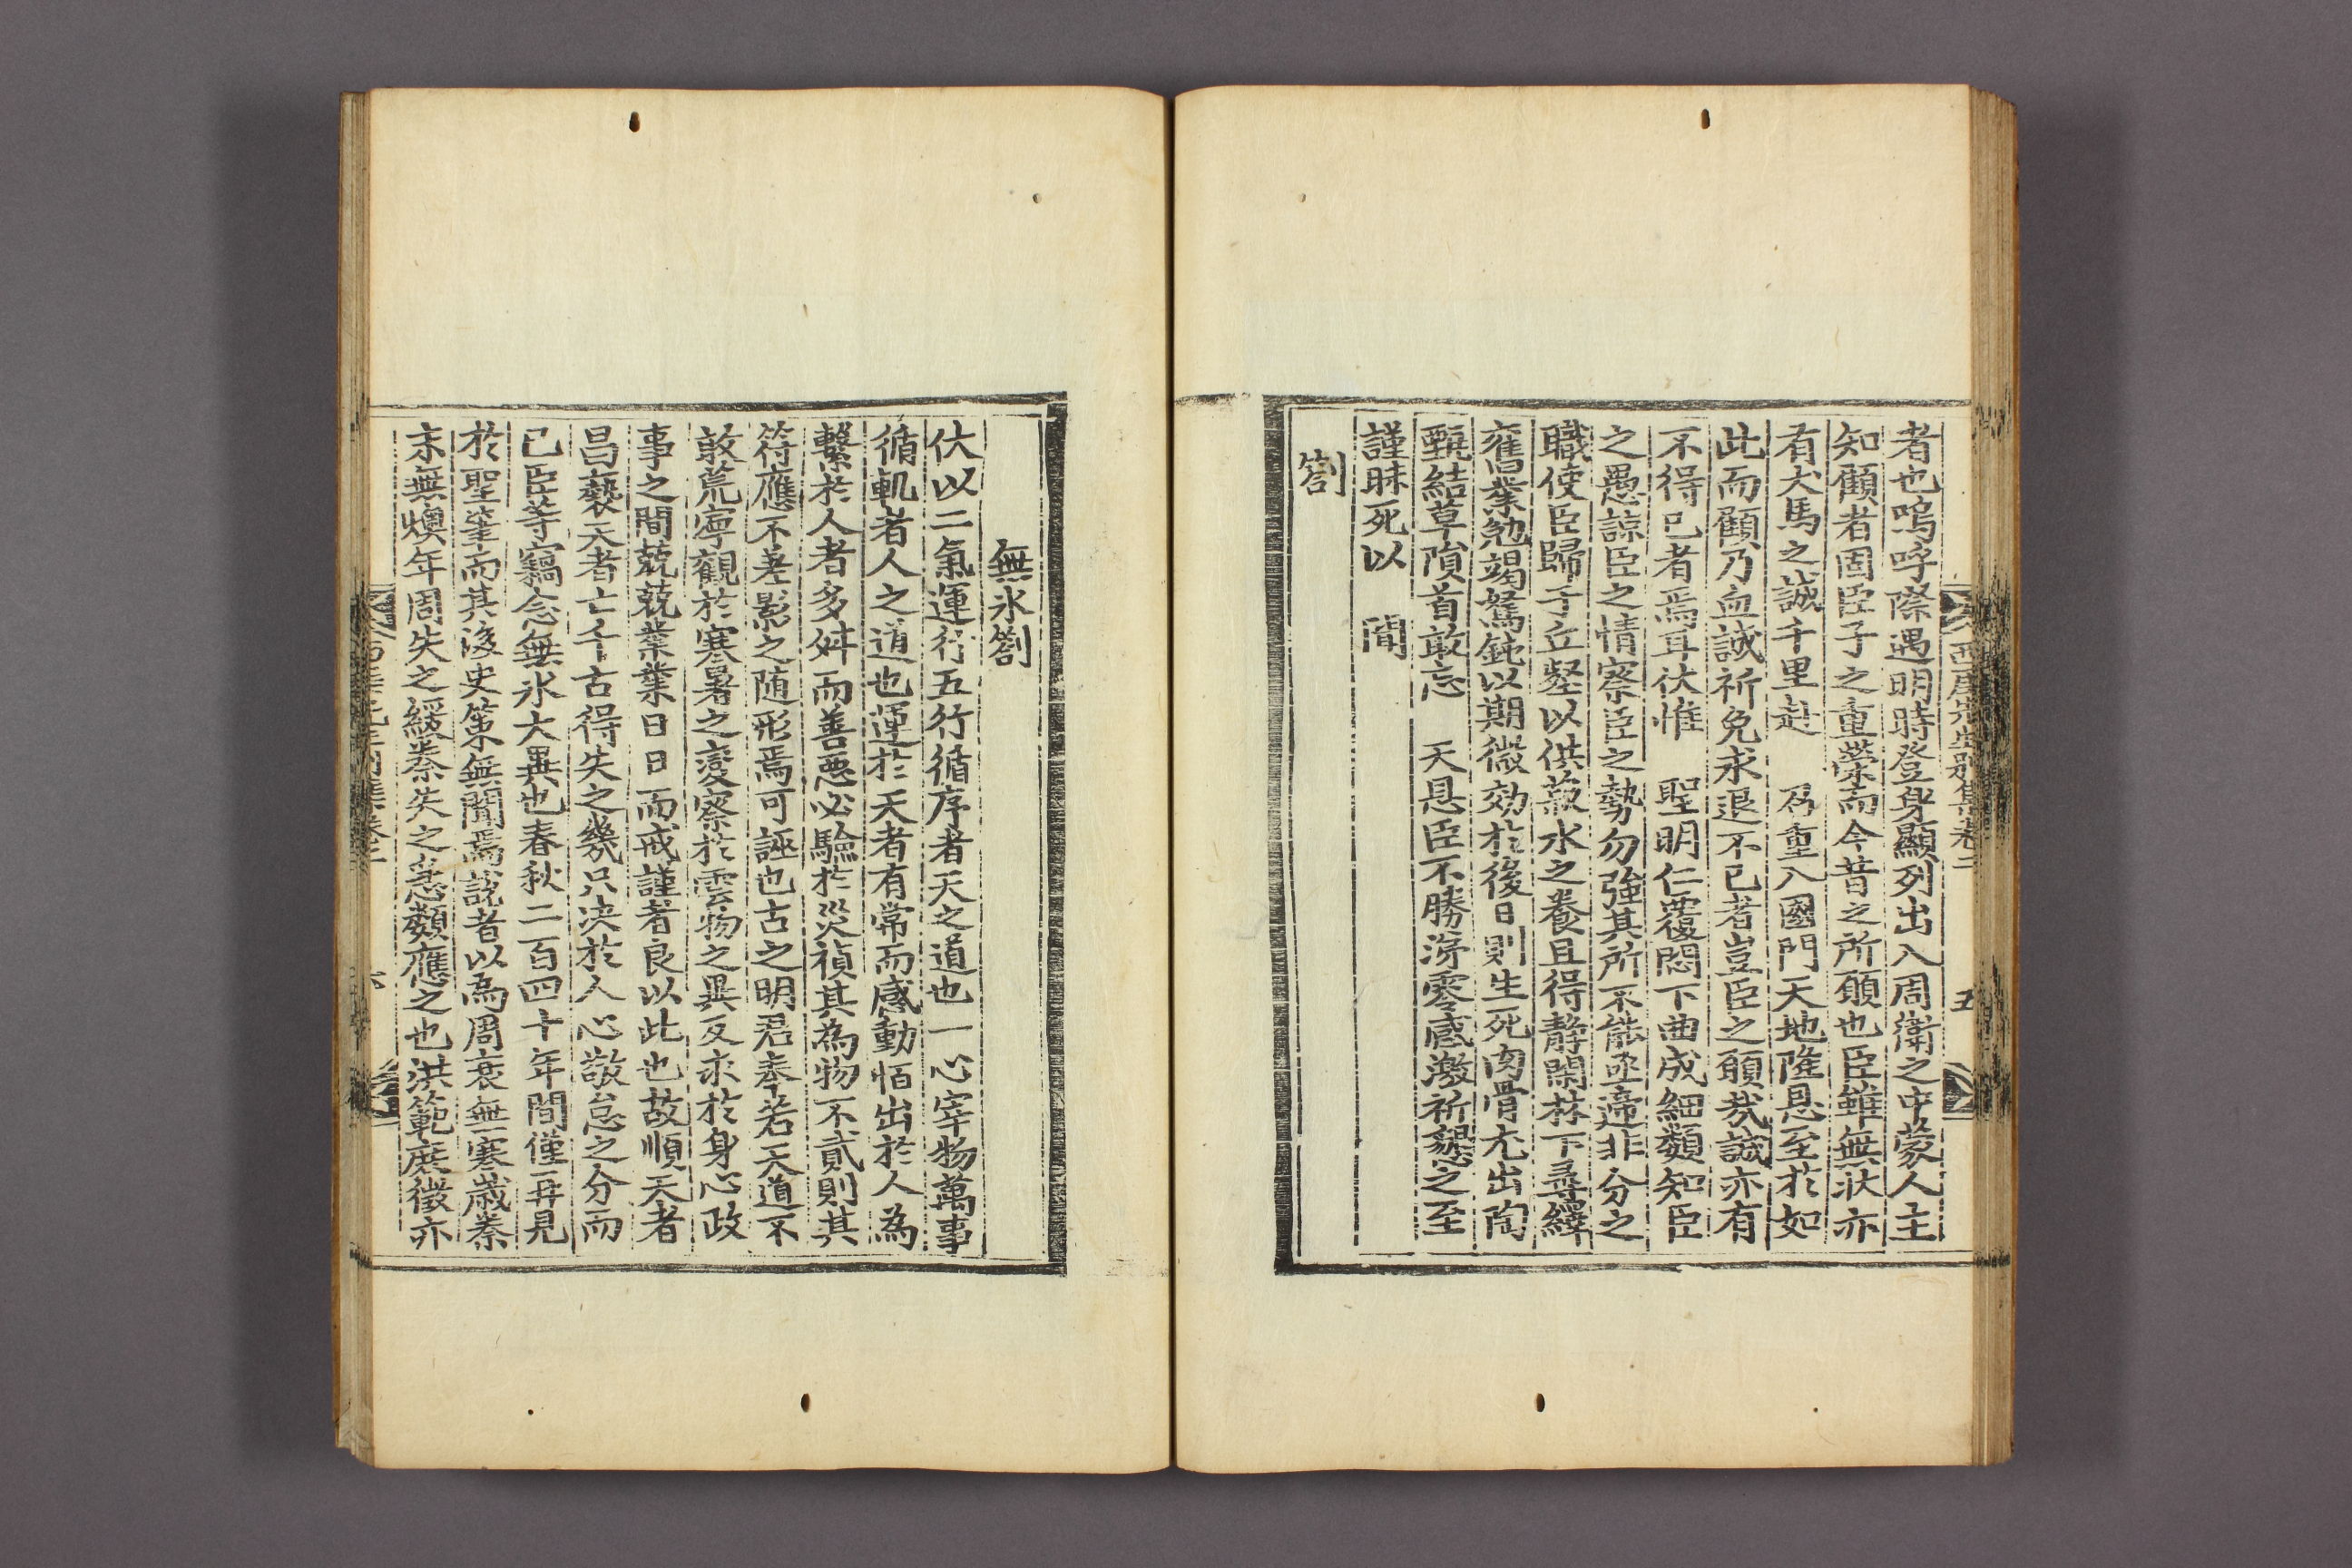 西厓先生別集卷二
五
者也嗚呼際遇明時登身顯列出入周衛之中蒙人主
知顧者固臣子之重榮而今昔之所願也臣雖無狀亦
有犬馬之誠千里赴　召重入國門天地隆恩至於如
此而顧乃血誠祈免求退不已者豈臣之願哉誠亦有
不得已者焉耳伏惟　聖明仁覆悶下曲成細類知臣
之愚諒臣之情察臣之勢勿強其所不能亟遞非分之
職使臣歸于丘壑以供菽水之養且得靜閑林下尋繹
舊業勉竭駑鈍以期微効於後日則生死肉骨尤出陶
甄結草隕首敢忘　天恩臣不勝涕零感激祈懇之至
謹昧死以　聞
劄
無氷劄
伏以二氣運行五行循序者天之道也一心宰物萬事
循軌者人之道也運於天者有常而感動恒出於人為
繫於人者多舛而善惡必驗於災禎其為物不貳則其
符應不差影之随形焉可誣也古之明君奉若天道不
敢荒寧觀於寒暑之變察於雲物之異反求於身心政
事之間兢兢業業日日而戒謹者良以此也故順天者
昌褻天者亡千古得失之幾只决於人心敬怠之分而
已臣等竊念無氷大異也春秋二百四十年間僅再見
於聖筆而其後史策無聞焉說者以為周衰無寒歲秦
末無燠年周失之緩秦失之急類應之也洪範庶徵亦
六